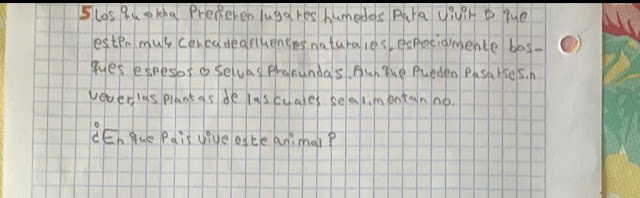 5 Los quokka Prefieren lugares humedos Para vivir o que
esten muy cerca de afluentes naturales, especialmente bos-
ques espesos o selvas Profundas. Aunque Pueden Pasarse sin
vever, las plantas de las cuales se alimentan no.
¿En que Pais vive este animal?